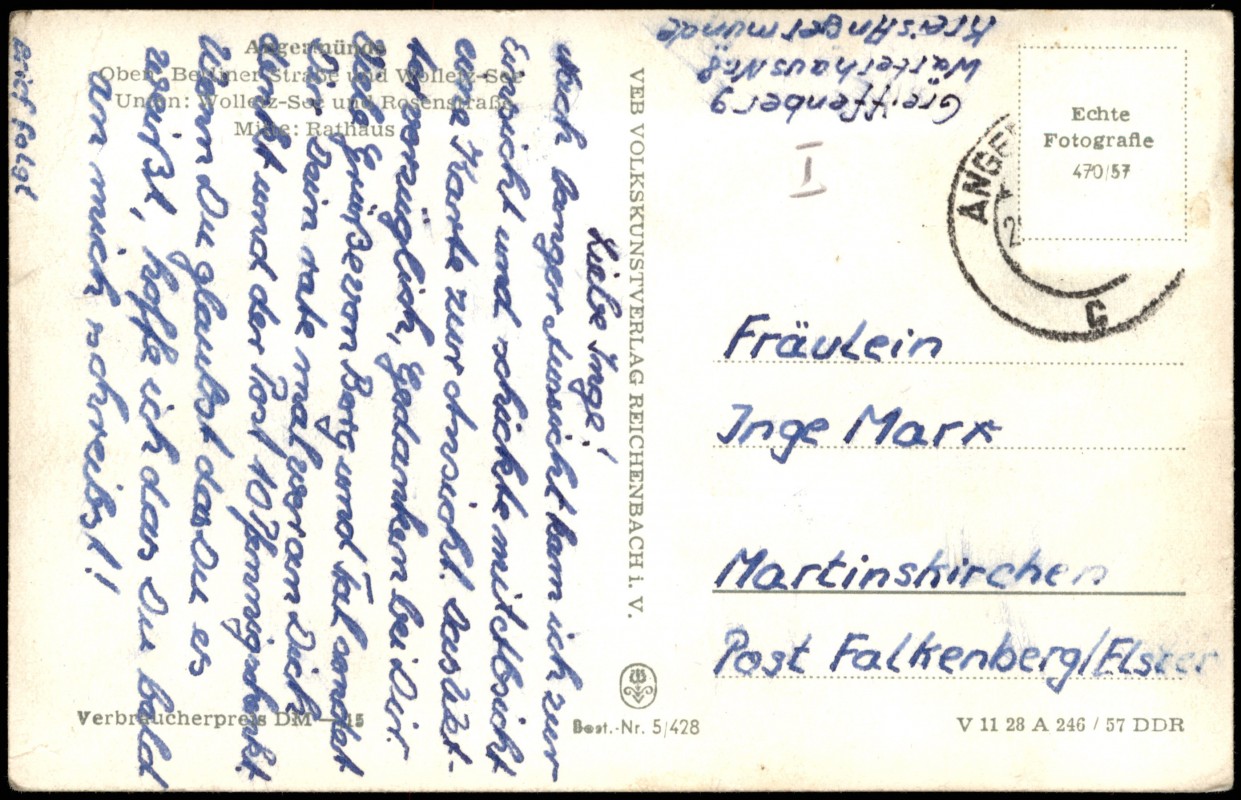 Angermünde
Oben: Berliner Straße und Wolletz-See
Unten: Wolletz-See und Rosenstraße
Mitte: Rathaus
Liebe Inge!
Nach langer Aussicht kam ich zur
Einsicht und schickte mit Absicht
eine Karte zur Ansicht. Das
Gedanken bei Dir.
Viele Grüße von Berg und Tal sendet
Dir Dein rate mal wer an Dich
denkt und der Post 10 Pfennig schenkt.
Wenn Du glaubst das Du es
weißt, hoffe ich das Du bald
an mich schreibst!
Brief folgt
Verbraucherpreis DM —,15
VEB VOLKSKUNSTVERLAG REICHENBACH i. V.
Best.-Nr. 5/428
Greiffenberg
Wärterhaus No 8
Kreis Angermünde
I
Echte
Fotografie
470/57
ANGE
2
C
Fräulein
Inge Marx
Martinskirchen
Post Falkenberg/Elster
V 11 28 A 246 / 57 DDR